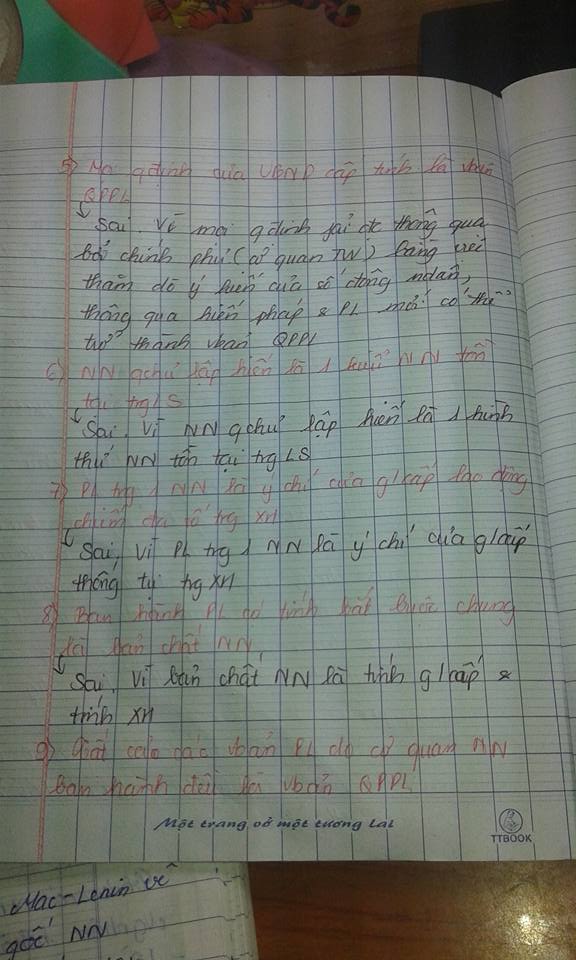 5) Mọi qđịnh của UBND cấp tỉnh là vbản
QPPL
Sai. Vì mọi qđịnh fải đc thông qua
bởi chính phủ (cơ quan TW) bằng việc
thăm dò ý kiến của số đông ndân,
thông qua hiến pháp & PL mới có thể
trở thành vbản QPPL
6) NN qchủ lập hiến là 1 kiểu NN tồn
tại trg LS
Sai. Vì NN qchủ lập hiến là 1 hình
thức NN tồn tại trg LS
7) PL trg 1 NN là ý chí của g/cấp lao động
chiếm đa số trg XH
Sai, Vì PL trg 1 NN là ý chí của g/cấp
thống trị trg XH
8) Ban hành PL có tính bắt buộc chung
là bản chất NN.
Sai. Vì bản chất NN là tính g/cấp &
tính XH
9) Tất cả các vbản PL do cơ quan NN
ban hành đều là vbản QPPL
Một trang vở một tương lai
TTBOOK
Mac-Lenin về
gốc NN